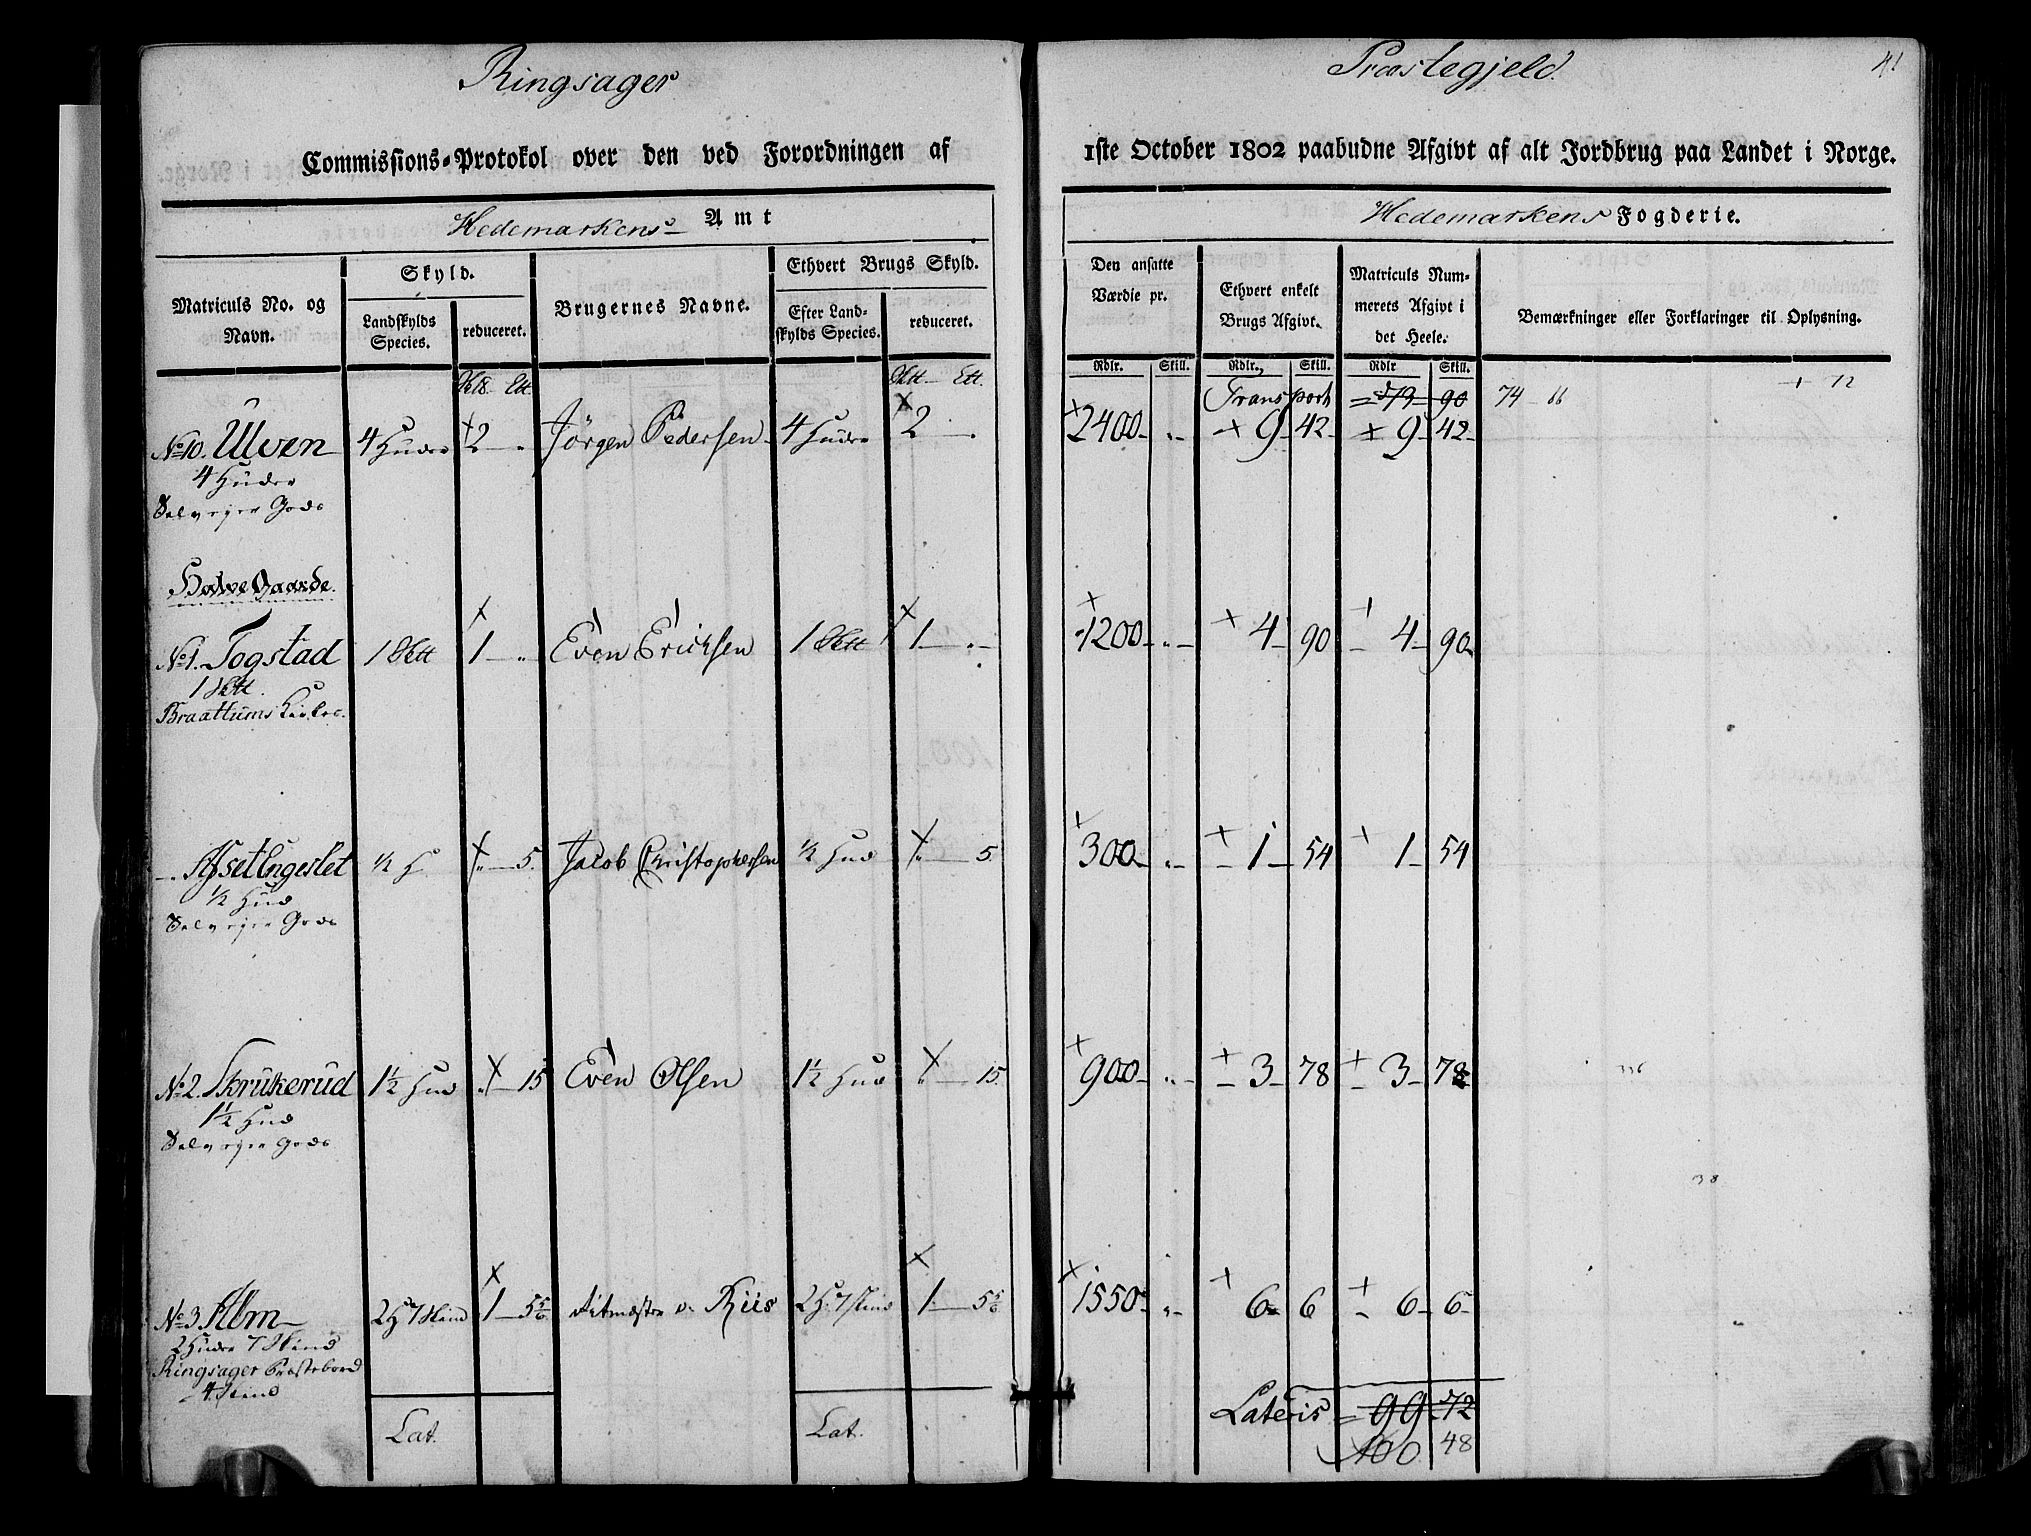 Ringsager
Præstegjeld.
41
Commissions-Protokol over den ved Forordningen af
1ste October 1802 paabudne Afgivt af alt Jordbrug paa Landet i Norge.
Hedemarkens Amt
Hedemarkens Fogderie.
Matriculs No. og Navn.
Skyld.
Landskylds Species.
reduceret.
Brugernes Navne.
Ethvert Brugs Skyld.
Efter Landskylds Species.
reduceret.
Den ansatte Værdie pr.
Ethvert enkelt Brugs Afgivt.
Matriculs Nummerets Afgivt i det Heele.
Bemærkninger eller Forklaringer til Oplysning.
Rdlr. Skill. Rdlr. Skill. Rdlr Skill.
Transport 73 90 74 86
No 10. Ulven 4 Huder 2 " Jörgen Pedersen 4 Huder 2 2400 " 9 42 9 42
4 Huder
Selveyer Gods
Halve Gaarde.
No 1. Togstad 1 1 " Even Ericksen 1 1 " 1200 " 4 90 4 90
1
Braattums Kirke.
1/2 H " 5. Jacob Christophersen 1/2 Hud " 5. 300 " 1 54 1 54
1/2 Hud
Selveyer Gods
No 2. Skrukerud 1 1/2 Hud " 15 Even Olsen 1 1/2 Hud " 15. 900 " 3 78 3 78
1 1/2 Hud
Selveyer Gods
No 3. Alm 2 H 7 Skind 1 5 5/6 Ritmæster v. Riis 2 H 7 Skind 1 5 5/6 1550 " 6 6 6 6
2 Huder 7 Skind
Ringsager Præstebord
4 Skind
Lat. Lat. Lateris 99 72
100 48